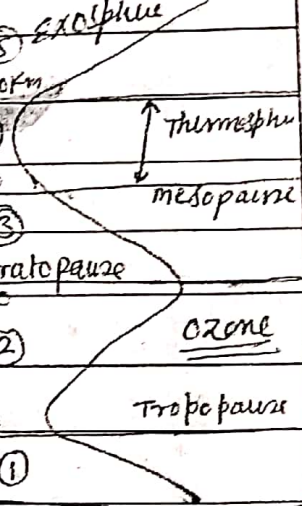 ⑤ Exosphe
0Km
Thermosphe
mesopause
③
ratopause
②
ozone
Tropopause
①